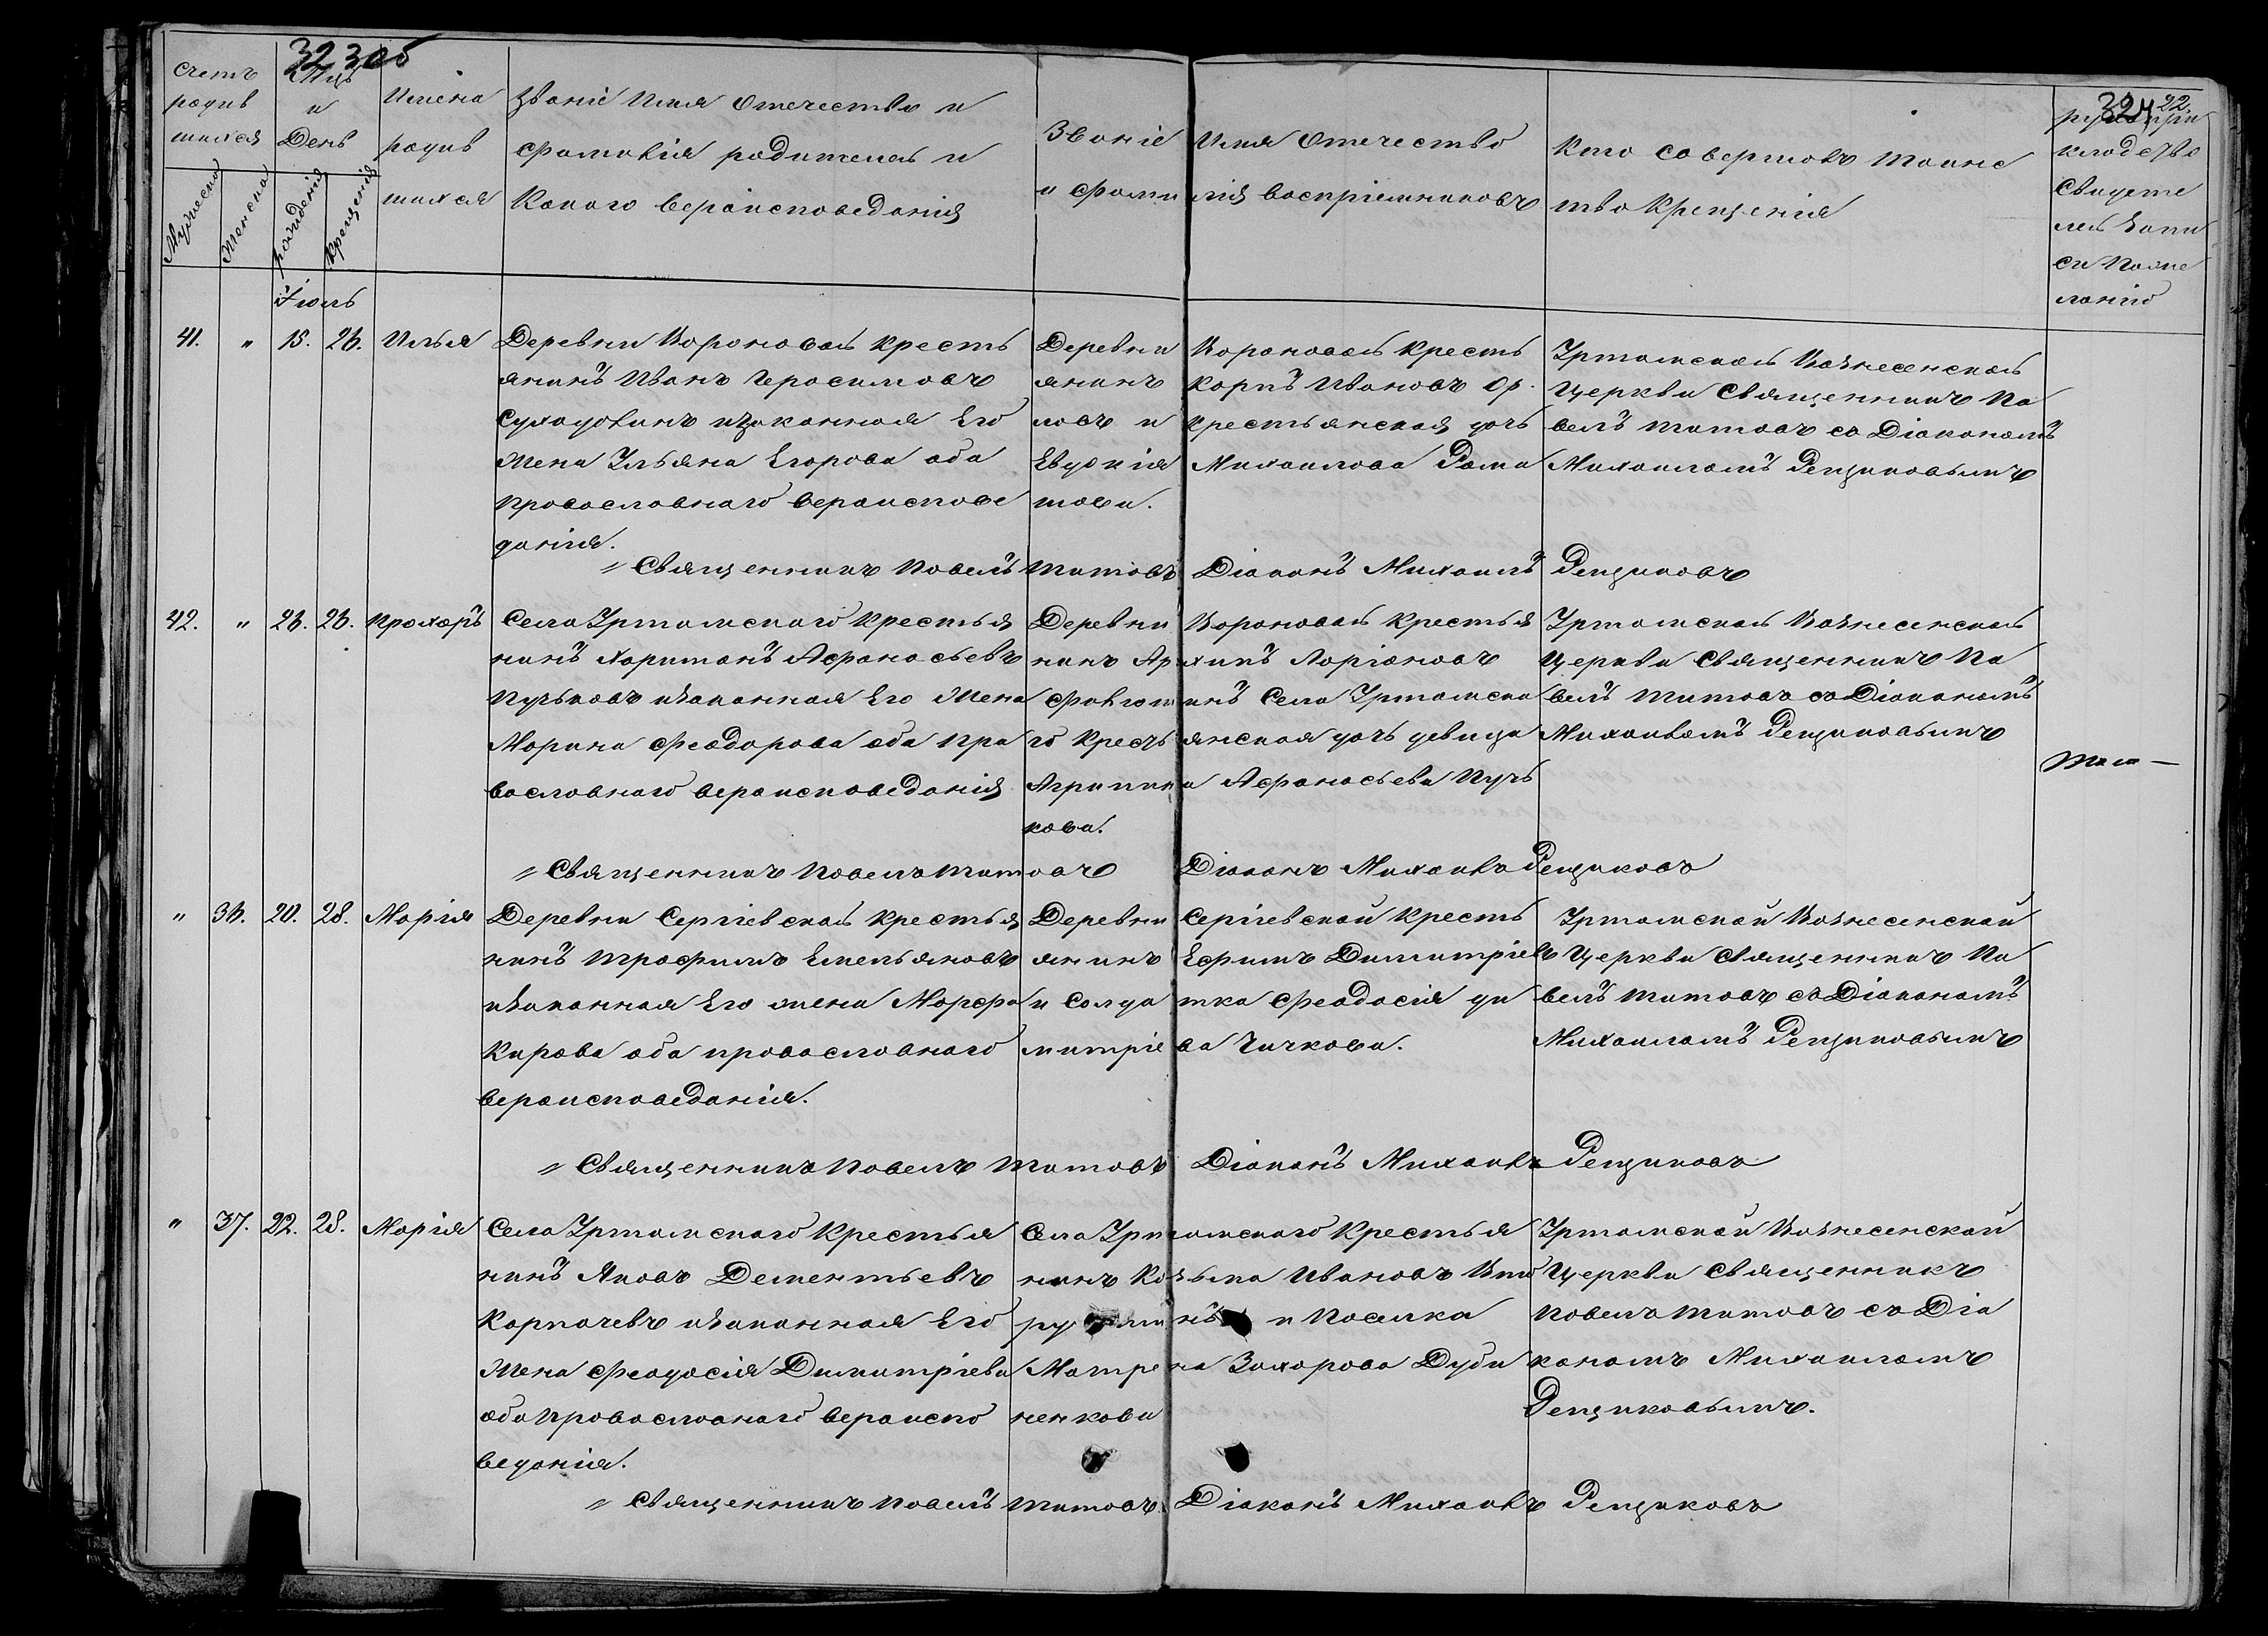 323об
324 22.
счетъ
родив
шихся
Мцъ
и
День
Имена
родив
шихся
Званіе Имя Отечество и
Фамилія родителей и
Какого вероисповеданія
Званіе Имя Отечество
и Фамилія воспріемниковъ
Кто совершалъ таинс
тво Крещенія
руко при
кладство
Свидете
лей Запи
си По же
ланію
Мужеска
Женска
рожденія
крещенія
Іюль
41. " 15. 26. Илья
Деревни Вороновой кресть
янинъ Иванъ Герасимовъ
Суходовинъ и законная Его
Жена Ульяна Егорова оба
православнаго вероиспове
данія.
Деревни Вороновой Кресть
янинъ Карпъ Ивановъ Ор
ловъ и Крестьянская дочь
Евдокія Михаилова Рома
това.
Уртамской Вознесенской
Церкви Священникъ Па
велъ Титовъ со Діакономъ
Михаиломъ Рещиковымъ
" Священникъ Павелъ Титовъ Діаконъ Михаилъ Рещиковъ
42. " 26. 26. Прохоръ
Села Уртамского Крестья
нинъ Харитонъ Афонасьевъ
Пучковъ и законная Его Жена
Марина Феодорова оба Пра
вославнаго вероисповеданія
Деревни Вороновой Крестья
нинъ Архипъ Ларіоновъ
инъ Села Уртамска
го Крестьянская дочь девица
Агрипина Афонасьева Пуч
кова.
Уртамской Вознесенской
Церкви Священникъ Па
велъ Титовъ со Діакономъ
Михаиломъ Рещиковымъ
" Священникъ Павелъ Титовъ Діаконъ Михаилъ Рещиковъ
" 36. 20. 28. Марія
Деревни Сергіевской Крестья
нинъ Трофимъ Емельяновъ
и законная Его жена Марфа
Карпова оба православнаго
вероисповеданія.
Деревни Сергіевской Кресть
янинъ Ефимъ Димитріевъ
и Солдатка Феодосія Ди
митріева Чичкова.
Уртамской Вознесенской
Церкви Священникъ Па
велъ Титовъ со Діакономъ
Михаиломъ Рещиковымъ
" Священникъ Павелъ Титовъ Діаконъ Михаилъ Рещиковъ
" 37. 22. 28. Марія
Села Уртамского Крестья
нинъ Яковъ Дементьевъ
Карпачевъ и законная Его
Жена Феодосія Димитріева
оба православнаго вероиспо
веданія.
Села Уртамского Крестья
нинъ Козьма Ивановъ
и Поселка
Матрена Захарова Дуби
ненкова
Уртамской Вознесенской
Церкви Священникъ
Павелъ Титовъ съ Діа
кономъ Михаиломъ
Рещиковымъ.
" Священникъ Павелъ Титовъ. Діаконъ Михаилъ Рещиковъ